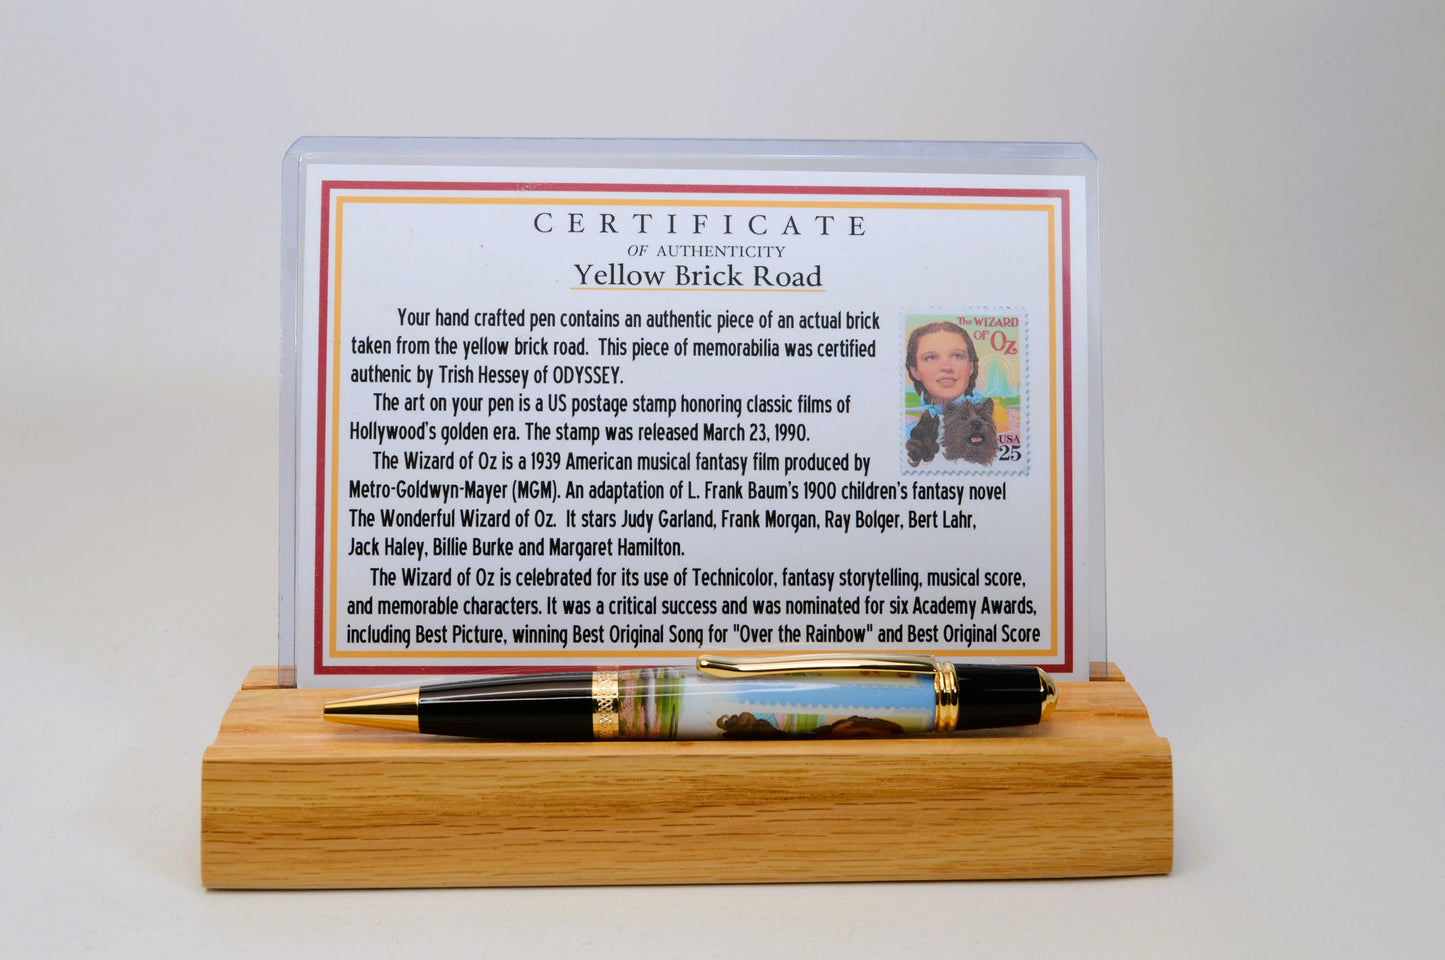 CERTIFICATE
OF AUTHENTICITY
Yellow Brick Road
Your hand crafted pen contains an authentic piece of an actual brick
taken from the yellow brick road. This piece of memorabilia was certified
authenic by Trish Hessey of ODYSSEY.
The art on your pen is a US postage stamp honoring classic films of
Hollywood's golden era. The stamp was released March 23, 1990.
The Wizard of Oz is a 1939 American musical fantasy film produced by
Metro-Goldwyn-Mayer (MGM). An adaptation of L. Frank Baum's 1900 children's fantasy novel
The Wonderful Wizard of Oz. It stars Judy Garland, Frank Morgan, Ray Bolger, Bert Lahr,
Jack Haley, Billie Burke and Margaret Hamilton.
The Wizard of Oz is celebrated for its use of Technicolor, fantasy storytelling, musical score,
and memorable characters. It was a critical success and was nominated for six Academy Awards,
including Best Picture, winning Best Original Song for "Over the Rainbow" and Best Original Score
The WIZARD
OF OZ
USA
25